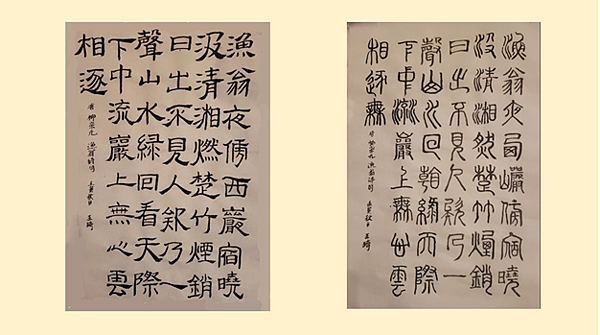 漁翁夜傍西巖宿曉
汲清湘燃楚竹煙銷
日出不見人欸乃一
聲山水綠回看天際
下中流巖上無心雲
相逐
唐 柳宗元 漁翁詩句 壬寅秋月 王琦
漁翁夜西巖傍宿曉
汲清湘燃楚竹煙銷
日出不見人欸乃一
聲山水回綠天際
下中流巖上無心雲
相逐無
唐 柳宗元 漁翁詩句 壬寅秋月 王琦